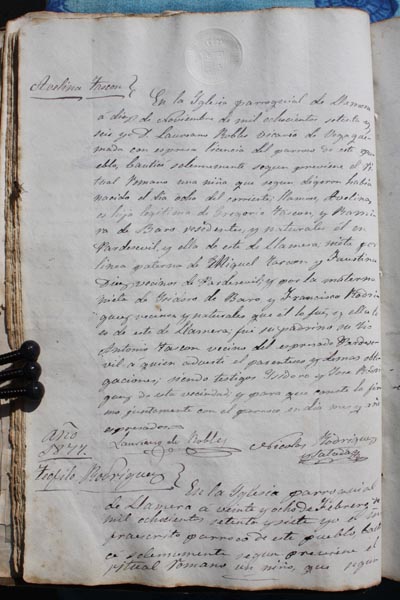 Avelina Tascon
En la Yglesia parroquial de Llamera
á diez de Noviembre de mil ochocientos setenta y
seis yo D. Laureano Robles Vicario de Vegaque
mada con espresa licencia del parroco de este pue
blo, bautice solemnemente segun previene el Ri
tual Romano una niña que segun digeron habia
nacido el dia ocho del corriente; llamose Avelina,
es hija legitima de Gregorio Tascon, y Ramo
na de Baro residentes, y naturales el en
Pardesevil, y ella de este de Llamera nieta por
linea paterna de Miguel Tascon, y Faustina
Diez, vecinos de Pardesevil, y por la materna
nieta de Ysidoro de Baro, y Francisca Rodri
guez, vecinos y naturales que él lo fué, y ella
es de este de Llamera; fué su padrino su tio
Antonio Tascon vecino del espresado Pardese
vil a quien adverti el parentesco y demas obli
gaciones; siendo testigos Ysidoro y Jose
de esta vecindad y para que conste lo fir
mo juntamente con el parroco en dia mes y año
espresados
Laureano de Robles
Nicolas Rodriguez
Año
1877
Teofilo Rodriguez
En la Yglesia parroquial
de Llamera a veinte y ocho de Febrero de
mil ochocientos setenta y siete yo el in
frascrito parroco de este pueblo, bauti
ce solemnemente segun previene el
ritual Romano un niño, que segun